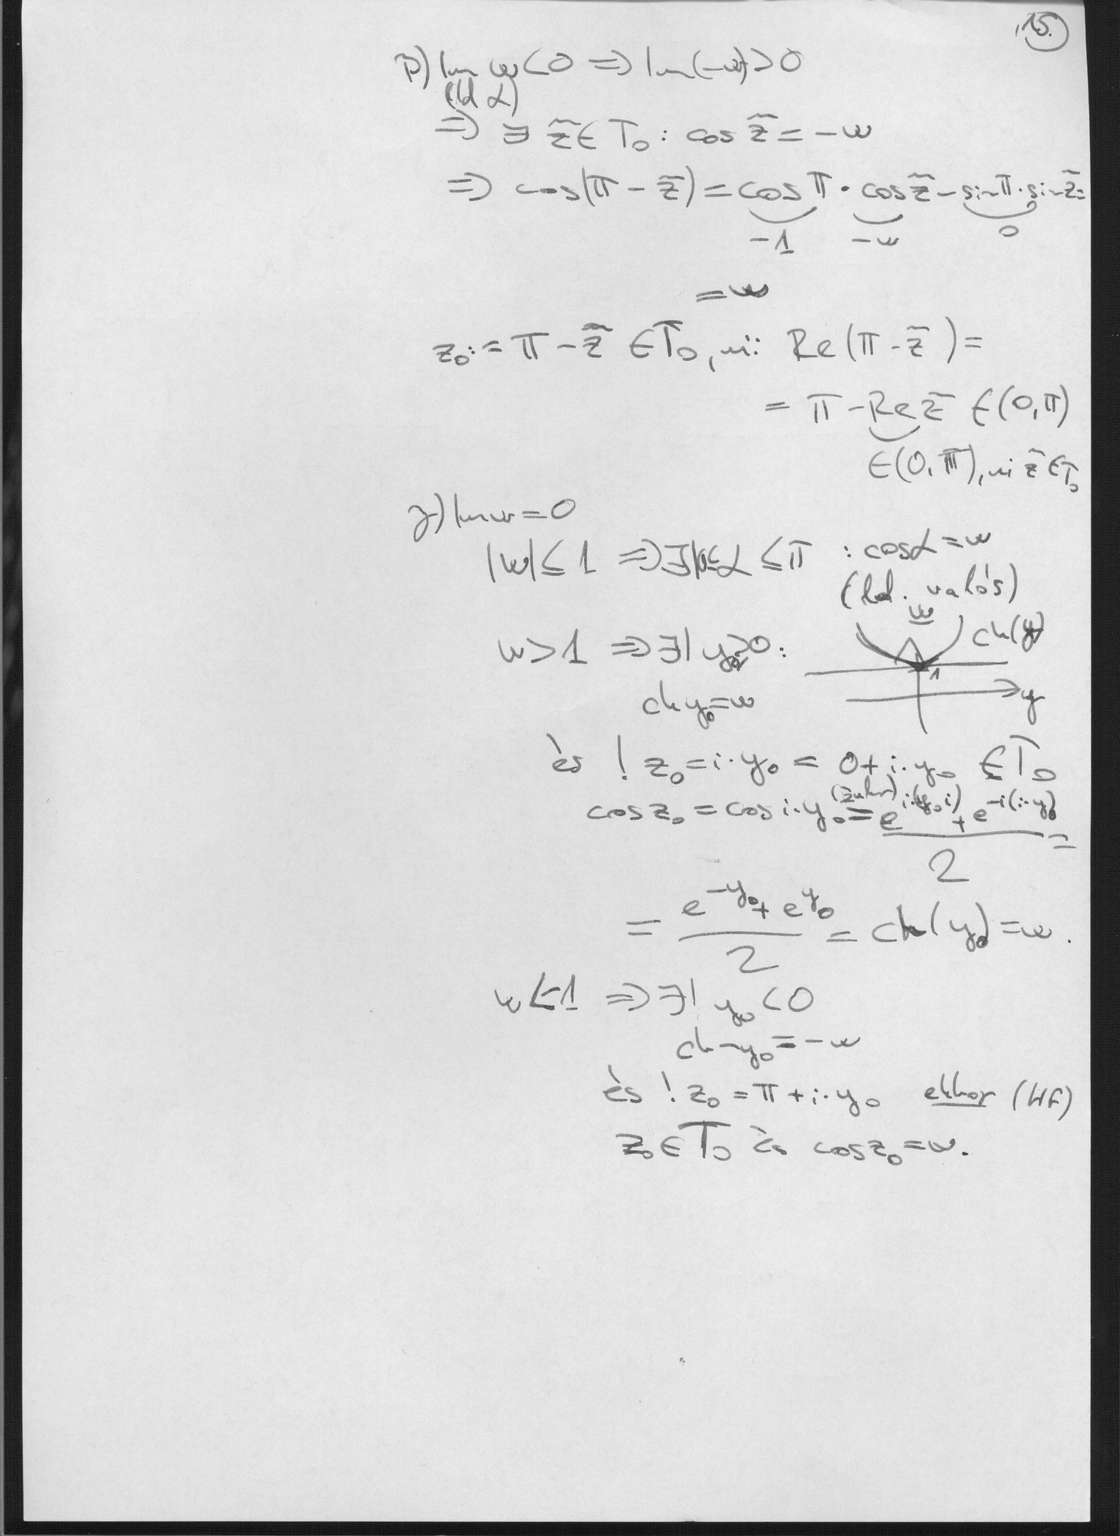 15.
β) Im w < 0 ⇒ Im(-w) > 0
(ld α)
⇒ ∃ z̃ ∈ T₀ : cos z̃ = -w
⇒ cos(π - z̃) = cos π · cos z̃ - sin π · sin z̃ =
-1 -w 0
= w
z₀ := π - z̃ ∈ T₀, mi: Re(π - z̃) =
= π - Re z̃ ∈ (0, π)
∈ (0, π), mi z̃ ∈ T₀
γ) Im w = 0
|w| ≤ 1 ⇒ ∃! 0 ≤ α ≤ π : cos α = w
(ld. valós)
w
w > 1 ⇒ ∃! y₀ > 0 : ch(y)
1
ch y₀ = w y
és ! z₀ = i·y₀ = 0 + i·y₀ ∈ T₀
cos z₀ = cos i·y₀ = (e^{i·(y₀ i)} + e^{-i(i·y₀)}) / 2 =
= (e^{-y₀} + e^{y₀}) / 2 = ch(y₀) = w.
w < -1 ⇒ ∃! y₀ < 0
ch -y₀ = -w
és ! z₀ = π + i·y₀ ekkor (HF)
z₀ ∈ T₀ és cos z₀ = w.